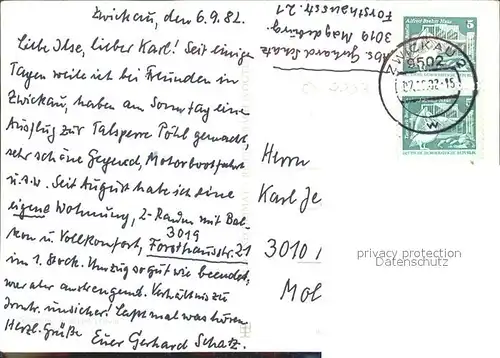 Zwickau, den 6.9.82
Liebe Ilse, lieber Karl! Seit einigen
Tagen weile ich bei Freunden in
Zwickau, haben am Sonntag eine
Ausflug zur Talsperre Pöhl gemacht,
sehr schöne Gegend, Motorbootfahrt
u.s.w. Seit August habe ich eine
eigene Wohnung, 2-Raum mit Bal-
kon u. Vollkomfort, Forsthausstr. 21
3019
im 1. Stock. Umzug so gut wie beendet,
war aber anstrengend. Verhältnis zu
unsicher! Laßt mal was hören.
Herzl. Grüße Euer Gerhard Schatz.
Abs. Gerhard Schatz
3019 Magdeburg
Forsthausstr. 21
5
ZWICKAU 2
9502
-15
w
Herrn
Karl Je
3010
Mol
privacy protection
Datenschutz